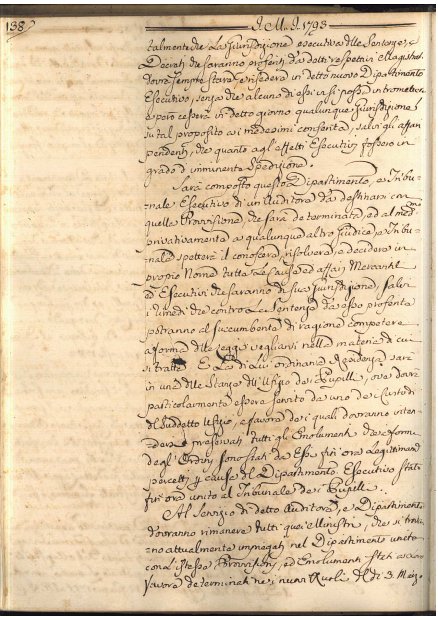 138.
I. M. I. 1793
talmente che la Giurisdizione esecutiva delle Sentenze, e
Decreti che saranno proferiti da detti respettivi Magistrati
dovrà sempre stare e risedere in detto nuovo Dipartimento
Esecutivo, senza che alcuno di essi vi si possa intromettere
e però cesserà in detto giorno qualunque Giurisdizione
su tal proposito ai medesimi conferita, salvi gli affari
pendenti, che quanto agl'effetti Esecutivi fossero in
grado d'imminente Spedizione.
Sarà composto questo Dipartimento, e Tribu-
nale Esecutivo di un Auditore da destinarsi con
quella Provvisione, che sarà determinata, ed al med.mo
privativamente a qualunque altro Giudice, e Tribu-
nale spetterà il conoscere, risolvere, e decidere in
proprio Nome tutte le Cause ed affari Mercantili
ed Esecutivi che saranno di sua Giurisdizione, salvi
i rimedi che contro la Sentenza da esso proferita
potranno al succumbente di ragione competere
a forma delle Leggi veglianti nella materia di cui
si tratta. E la di Lui ordinaria Residenza sarà
in una delle Stanze dell'Ufizio de i Pupilli, ove dovrà
particolarmente essere servito da uno de i Custodi
del suddetto Ufizio, a favore de i quali dovranno inten-
dersi preservati tutti gli Emolumenti che a forma
degl'Ordini sono stati da Essi fin' ora legittimamente
percetti per cause del Dipartimento Esecutivo stato
fin' ora unito al Tribunale de i Pupilli.
Al Servizio di detto Auditore, e Dipartimento
dovranno rimanere tutti quei Ministri, che si trova-
no attualmente impiegati nel Dipartimento unito
con l'istesse Provvisioni, ed Emolumenti stati a loro
favore determinati ne i nuovi Ruoli del dì 3. Marzo